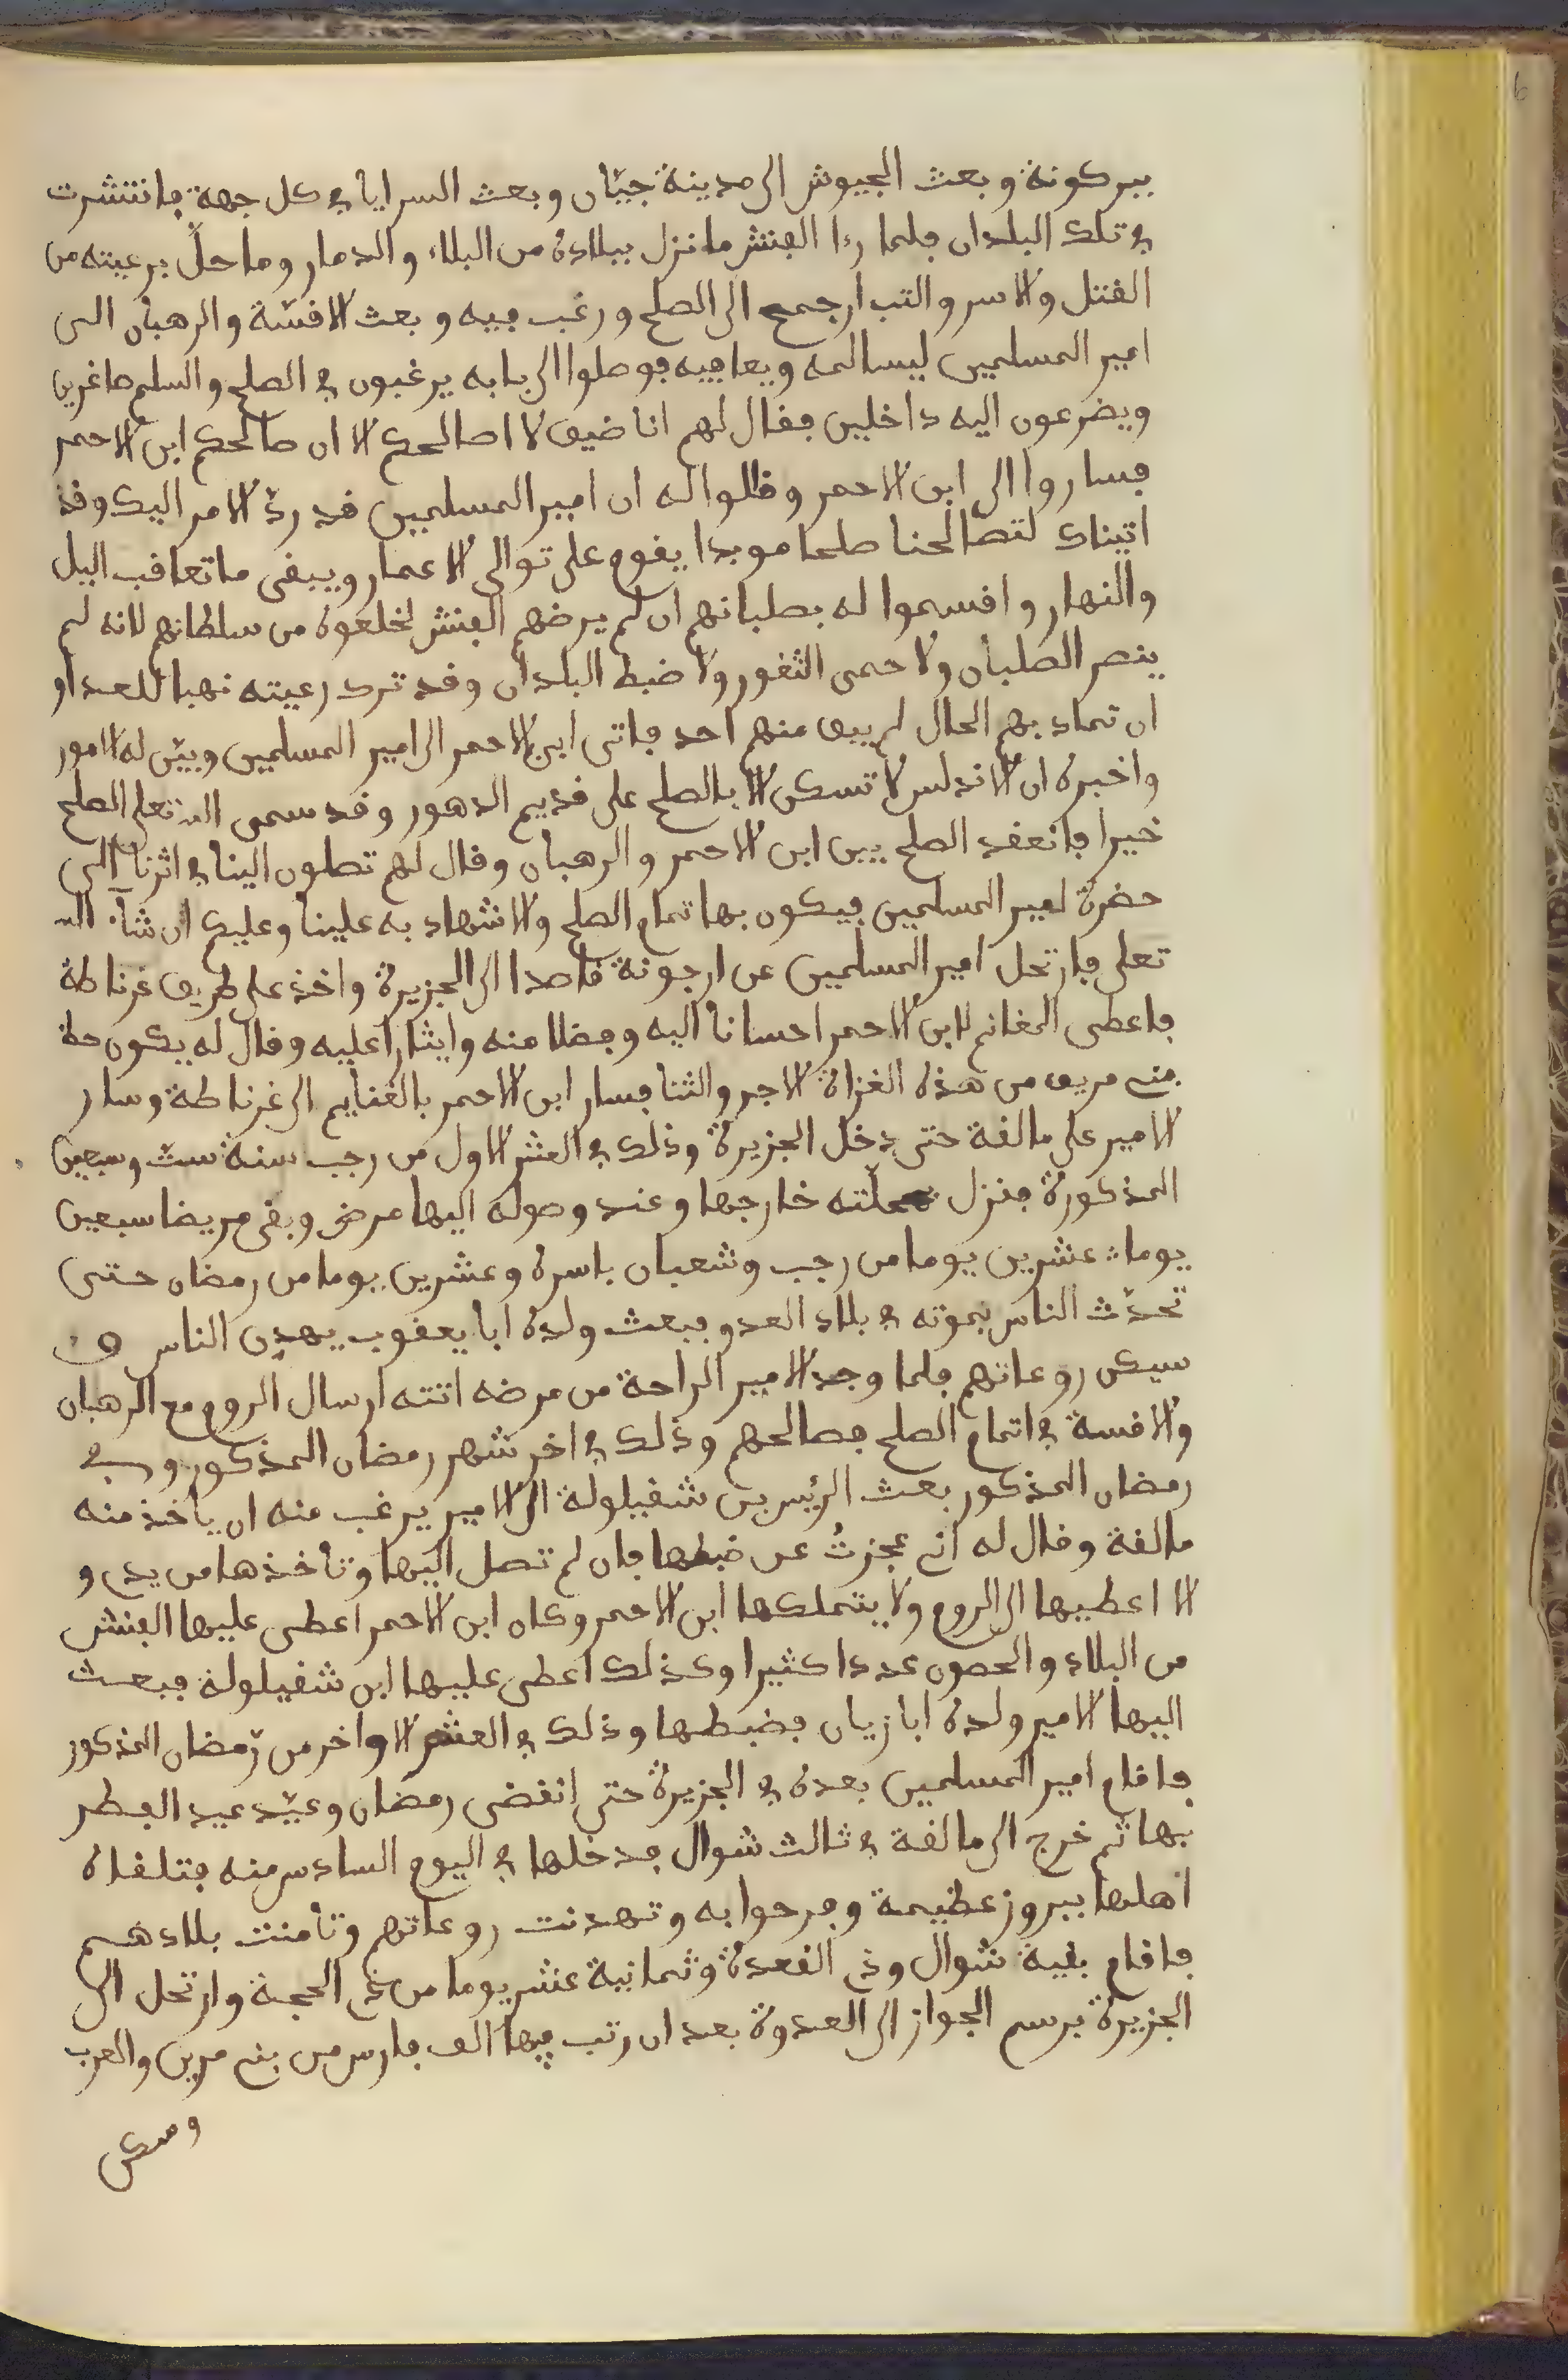 ببركونة وبعث الجيوش الى مدينة جيّان وبعث السرايا في كل جهة فانتشرت
في تلك البلدان فلما رءا الفنش ما نزل ببلاده من البلاء والدمار وما حلّ برعيته من
القتل والاسر والتبار جمح الى الصلح ورغب فيه وبعث الاقسّة والرهبان الى
امير المسلمين ليسالمه ويعافيه فوصلوا الى بابه يرغبون في الصلح والسلم صاغرين
ويضرعون اليه داخلين فقال لهم انا ضيف لا اصالحكم الا ان صالحكم ابن الاحمر
فساروا الى ابن الاحمر وقالوا له ان امير المسلمين قد ردّ الامر اليك وقد
اتيناك لتصالحنا صلحا موبدا يقوم على توالى الاعمار ويبقى ما تعاقب اليل
والنهار واقسموا له بصلبانهم ان لم يرضهم الفنش لخلعوه من سلطانهم لانه لم
ينصر الصلبان ولا حمى الثغور ولا ضبط البلدان وقد ترك رعيته نهبا للعدا و
ان تماد بهم الحال لم يبق منهم احد فاتى ابن الاحمر الى امير المسلمين وبيّن له الامور
واخبره ان الاندلس لا تسكن الا بالصلح على قديم الدهور وقد سمى الله تعلى الصلح
خيرا فانعقد الصلح بين ابن الاحمر والرهبان وقال لهم تصلون الينا في اثرنا الى
حضرة امير المسلمين فيكون بها تمام الصلح والاشهاد به علينا وعليكم ان شاء الله
تعلى فارتحل امير المسلمين عن ارجونة قاصدا الى الجزيرة واخذ على طريق غرناطة
فاعطى المغانم لابن الاحمر احسانا اليه وفضلا منه وايثارا عليه وقال له يكون حظ
بني مرين من هذه الغزاة الاجر والثنا فسار ابن الاحمر بالغنايم الى غرناطة وسار
الامير على مالقة حتى دخل الجزيرة وذلك في العشر الاول من رجب سنة ستّ وسبعين
المذكورة فنزل بمحلّته خارجها وعند وصوله اليها مرض وبقى مريضا سبعين
يوما عشرين يوما من رجب وشعبان باسره وعشرين يوما من رمضان حتى
تحدّث الناس بموته في بلاد العدو فبعث ولده ابا يعقوب يهدن الناس و
سيكن روعاتهم فلما وجد الامير الراحة من مرضه اتته ارسال الروم مع الرهبان
والاقسة في اتمام الصلح فصالحهم وذلك في اخر شهر رمضان المذكور وفي
رمضان المذكور بعث الرئيس بن شقيلولة الى الامير يرغب منه ان ياخذ منه
مالقة وقال له اني عجزتُ عن ضبطها فان لم تصل اليها وتأخذها من يدي و
الا اعطيها الى الروم ولا يتملكها ابن الاحمر وكان ابن الاحمر اعطى عليها الفنش
من البلاد والحصون عددا كثيرا وكذلك اعطى عليها ابن شقيلولة فبعث
اليها الامير ولده ابا زيان فضبطها وذلك في العشر الاواخر من رمضان المذكور
فاقام امير المسلمين بعده في الجزيرة حتى انقضى رمضان وعيّد عيد الفطر
بها ثم خرج الى مالقة في ثالث شوال فدخلها في اليوم السادس منه فتلقاه
اهلها ببروز عظيمة وفرحوا به وتهدنت روعاتهم وتأمنت بلادهم
فاقام بقية شوال وذي القعدة وثمانية عشر يوما من ذي الحجة وارتحل الى
الجزيرة برسم الجواز الى العدوة بعد ان رتب فيها الف فارس من بني مرين والعرب